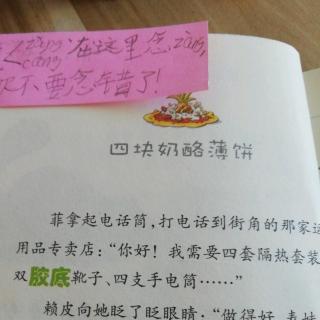 zàng
cáng 在这里念zàng,
不要念错了!
四块奶酪薄饼
菲拿起电话筒,打电话到街角的那家运
用品专卖店:“你好!我需要四套隔热套装
双胶底靴子、四支手电筒……”
赖皮向她眨了眨眼睛:“做得好,表妹